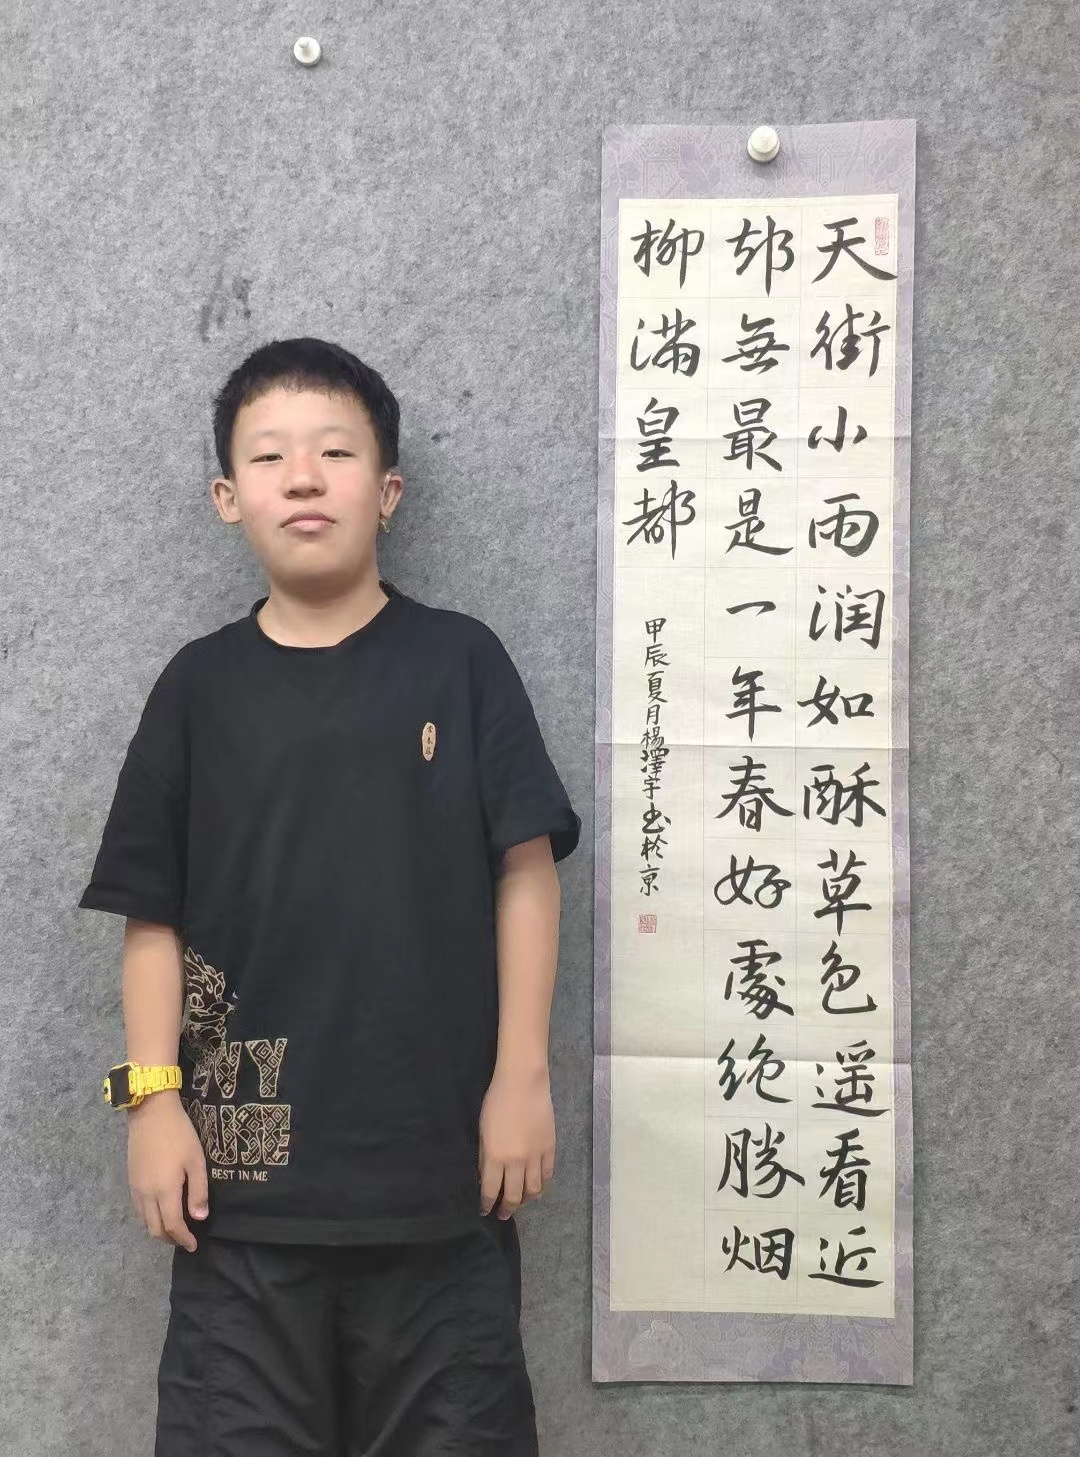 天街小雨润如酥草色遥看近
却無最是一年春好處绝勝烟
柳满皇都
甲辰夏月楊澤宇书於京
BEST IN ME